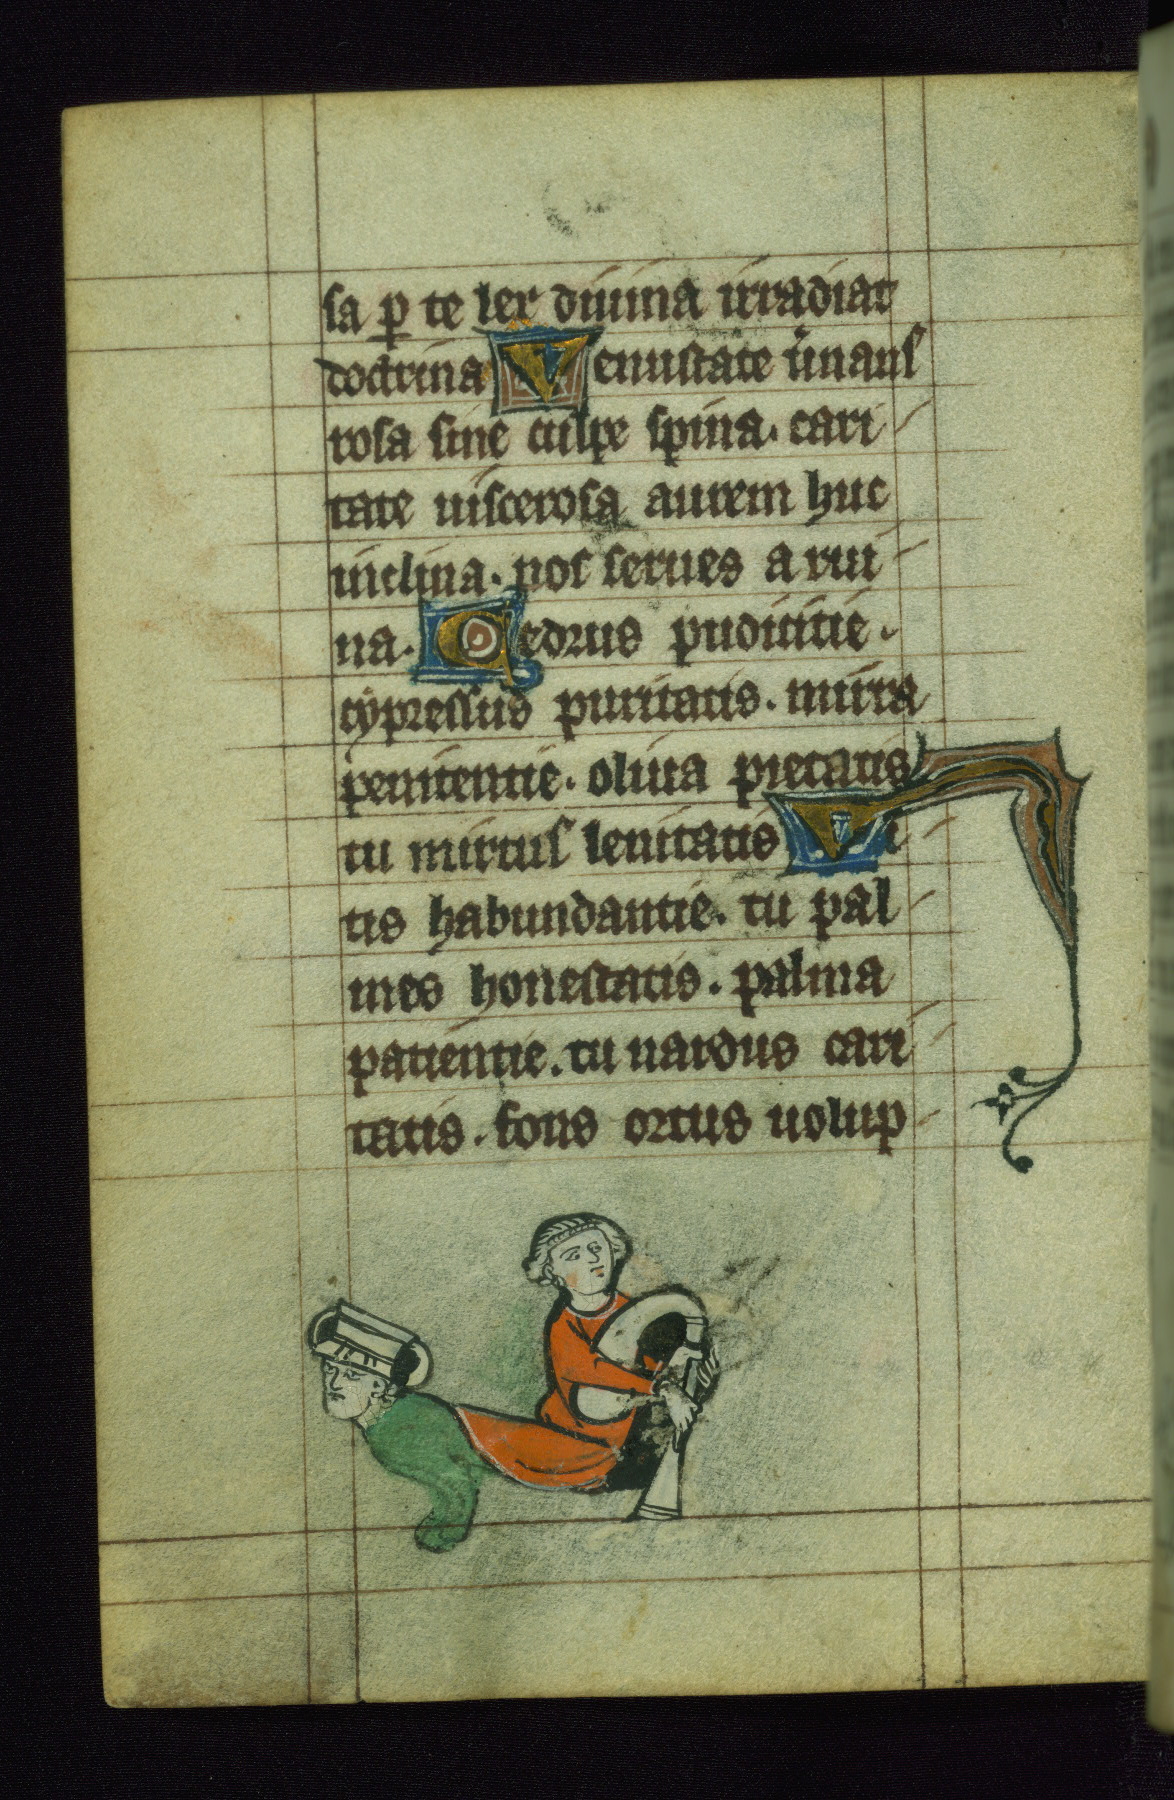 sa p te lex diuina irradiat
doctrina Venustate uinans
rosa sine culpe spina. cari
tate uiscerosa aurem huc
inclina. nos serues a rui
na. Cedrus pudicitie.
cypressus puritatis. mirra
penitentie. oliua pietatis
tu mirtus lenitatis Vi
tis habundantie. tu pal
mes honestatis. palma
patientie. tu nardus cari
tatis. fons ortus uolup